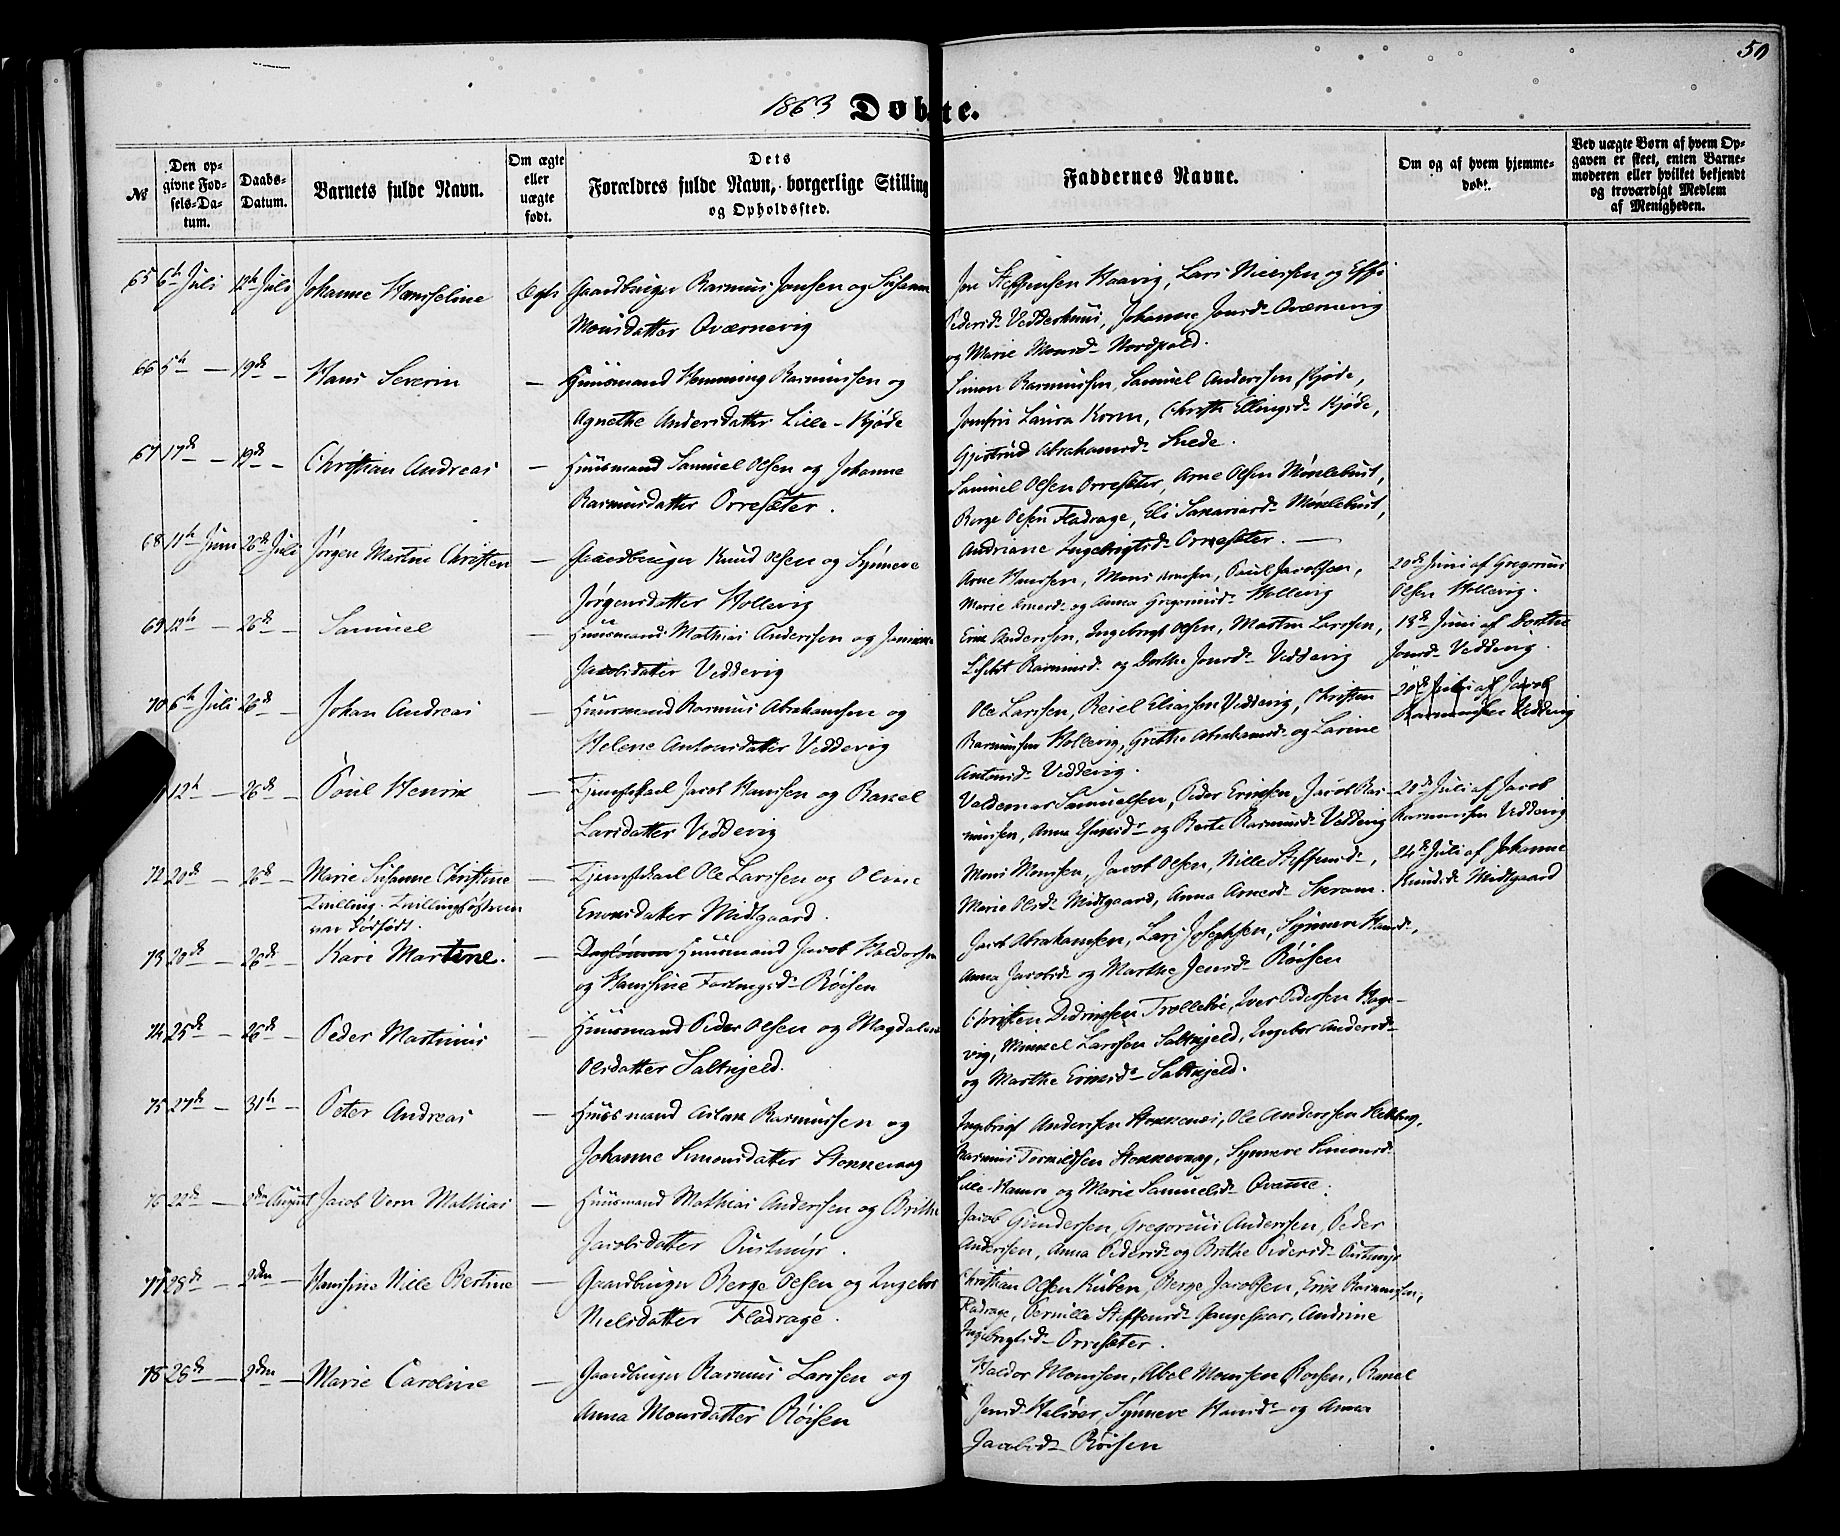 50
1863 Døbte.
№
Den opgivne Fødsels-Datum.
Daabs-Datum.
Barnets fulde Navn.
Om ægte eller uægte født.
Dets Forældres fulde Navn, borgerlige Stilling og Opholdssted.
Faddernes Navne.
Om og af hvem hjemmedøbt.
Ved uægte Børn af hvem Opgaven er skeet, enten Barnemoderen eller hvilket bekjendt og troværdigt Medlem af Menigheden.
65 6te Juli 12te Juli Johanne Hansseline Ægte Gaardbruger Rasmus Jonsen og Susanne
Monsdatter Qværnevig
Jon Steffensen Haavig, Lars Nielssen og
Pedersd. Vedderhuus, Johanne Jonsd. Qværnevig
og Marie Monsd. Nordpold.
66 5te — 19de — Hans Severin — Huusmand Hemming Rasmussen og
Agnethe Andersdatter Lille-Kjøde
Simon Rasmussen, Samuel Anderssen Kjøde,
Jomfru Laura Koren, Christi Ellingsd. Kjøde,
Gjertrud Abrahamsd.
67 17de — 19de — Christian Andreas — Huusmand Samuel Olsen og Johanne
Rasmusdatter Orresæter.
Samuel Olsen Orresæter, Arne Olsen Møxlebust,
Berge Olsen Fladrage, Eli Sakariasd. Møxlebust,
Andriane Ingebrigtsd. Orresæter. —
68 11te Juni 26de Juli Jørgen Martin Christen — Gaardbruger Knud Olsen og Synneve
Jørgensdatter Hollevig
Arne Hanssen, Mons Arnesen, Poul Jacobsen,
Marie Arnesd. og Anna Gregoriusd. Hollevig
20de Juni af Gregorius
Olsen Hollevig.
69 12te — 26de — Samuel — Huusmand Mathias Anderssen og
Jacobsdatter Veddevig
Erik Anderssen, Ingebrigt Olsen, Morten Larssen,
Lisbet Rasmusd. og Dorthe Jonsd. Veddevig
13de Juni af Dorthe
Jonsd. Veddevig.
70 6te Juli 26de — Johan Andreas — Huusmand Rasmus Abrahamsen og
Helene Antonsdatter Veddevig
Ole Larssen, Reiel Eliassen Veddevig, Christen
Rasmussen Hollevig, Grethe Abrahamsd. og Larine
Antonsd. Veddevig.
20de Juli af Jacob
Rasmussen Veddevig
12te — 26de — Poul Henrik — Tjenestkarl Jacob Hanssen og Rakel
Larsdatter Veddevig
Valdemar Samuelsen, Peder Erikssen, Jacob Ras-
mussen, Anna Hansd. og Berte Rasmusd. Veddevig
20de Juli af Jacob
Rasmussen Veddevig
72 20de — 26de — Marie Susanne Christine — Tjenestkarl Ole Larssen og Oline
Tvilling. Tvillingsøsteren
var dødfødt.
Enonsdatter Midtgaard.
Mons Monssen, Jacob Olsen, Nille Steffensd.,
Marie Olsd. Midtgaard, Anna Arnesd. Skram.
24de Juli af Johanne
Knudsd. Midtgaard
73 20de — 26de — Kari Martine. — Huusmand Jacob Haldorsen
og Hansine Røisen
Jacob Abrahamsen, Lars Josephsen, Synneve Hansd.,
Anna Jacobsd. og Marthe Jensd. Røisen
74 25de — 26de — Peder Martinus — Huusmand Peder Olsen og Magdalene
Olsdatter Saltkjeld.
Christen Didriksen Trollebø, Iver Pedersen Hage-
vig, Mikkel Larssen Saltkjeld, Ingebor Andersd.
og Marthe Eriksd. Saltkjeld.
75 27de — 31te — Peter Andreas — Huusmand Aslak Rasmussen og
Johanne Simonsdatter Stokkevaag
Ingebrigt Anderssen Stokkenæs, Ole Anderssen
Rasmus Stokkevaag, Synneve Simonsd.
Lille-Hamre og Marie Samuelsd. Qvamme.
76 22de — 2den August Jacob Vern Mathias — Huusmand Mathias Anderssen og Brithe
Jacobsdatter Qustmyr.
Jacob Gundersen, Gregorius Anderssen, Peder
Anderssen, Anna Pedersd. og Brithe Pedersd. Qustmyr
77 28de — 2den — Hansine Nille Bertine — Gaardbruger Berge Olsen og Ingebor
Nielsdatter Fladrage.
Christian Olsen Kuben, Berge Jacobsen, Erik Rasmussen,
Fladrage, Pernille Steffensd. Gangeskar, Andrine
Ingebrigtsd. Orresæter.
78 28de — 2den — Marie Caroline — Gaardbruger Rasmus Larssen og
Anna Monsdatter Røisen
Haldor Monssen, Abel Monssen Røisen, Rakel
Jensd. Halsør, Synneve Hansd. og Anna
Jacobsd. Røisen